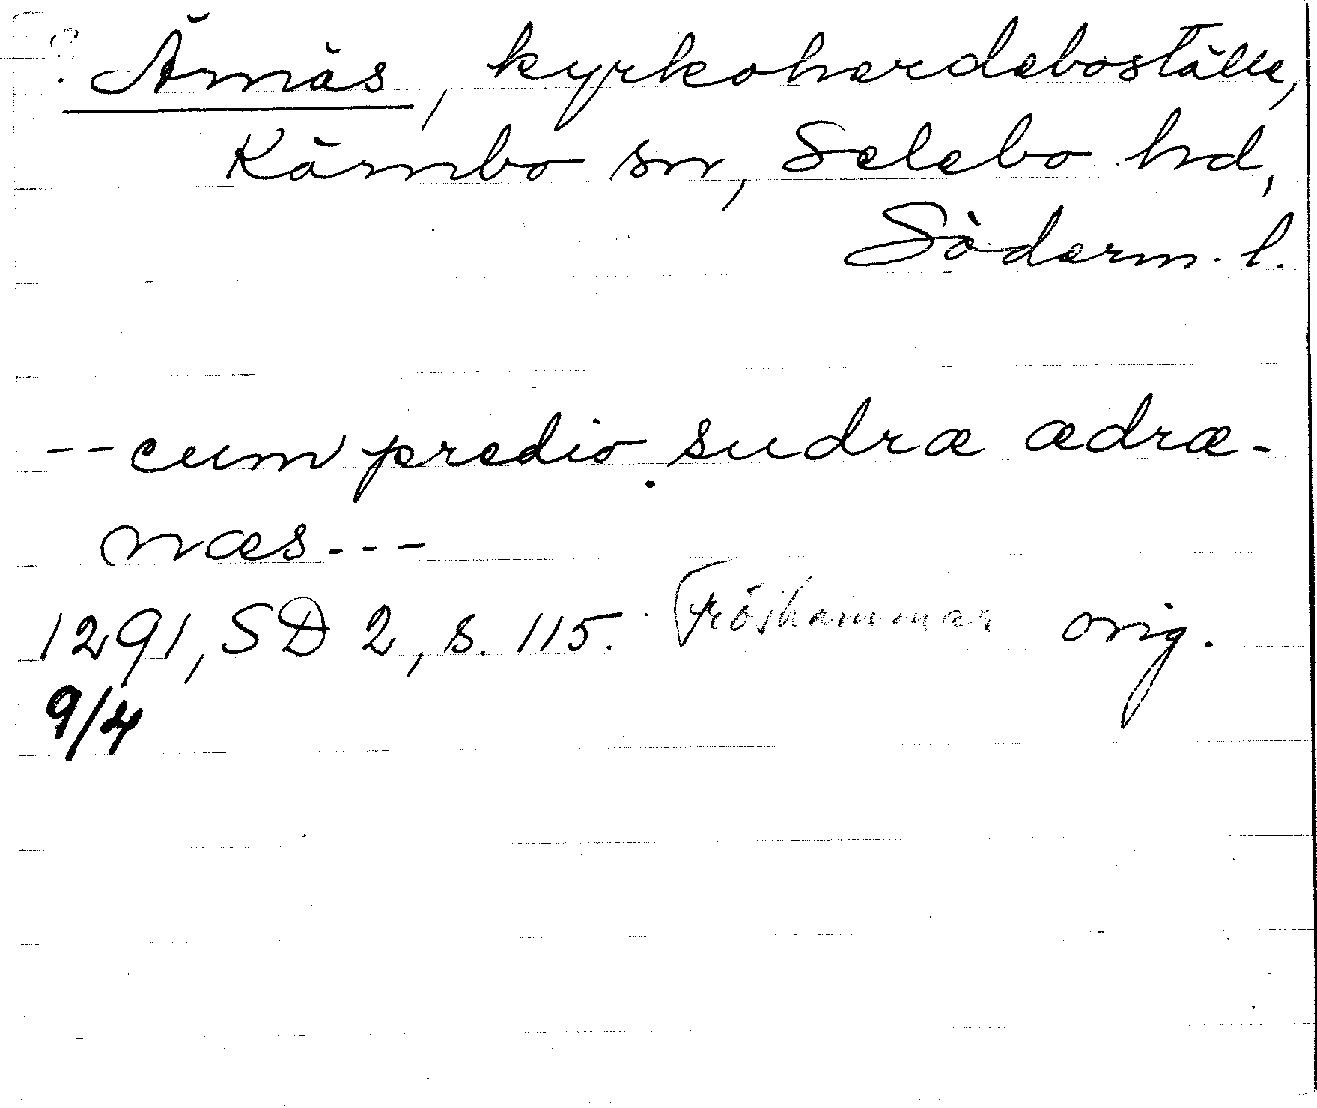 ? Ämäs, kyrkoherdeboställe,
Kärnbo sn, Selebo hd,
Söderm. l.
--cum predio sudræ ædræ-
næs---
1291, SD 2, s. 115. Fröshammar orig.
9/4